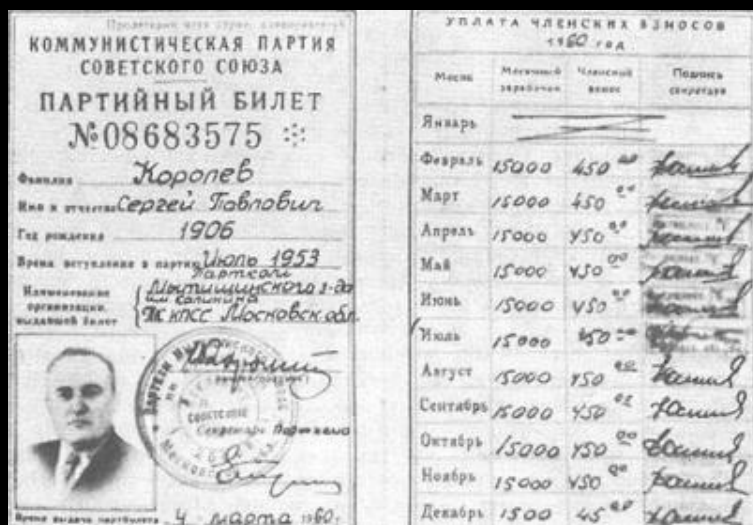 Пролетарии всех стран, соединяйтесь!
КОММУНИСТИЧЕСКАЯ ПАРТИЯ
СОВЕТСКОГО СОЮЗА
ПАРТИЙНЫЙ БИЛЕТ
№08683575
Фамилия Королев
Имя и отчество Сергей Павлович
Год рождения 1906
Время вступления в партию Июль 1953
Наименование организации, выдавшей билет
Парткоm
Мытищинского з-да
им Калинина
КПСС Московск обл.
Секретарь Парткома
Время выдачи партбилета 4 марта 1960г.
УПЛАТА ЧЛЕНСКИХ ВЗНОСОВ
1960 год
Месяц Месячный заработок Членский взнос Подпись секретаря
Январь
Февраль 15000 450 00
Март 15000 450 00
Апрель 15000 450 00
Май 15000 450 00
Июнь 15000 450 00
Июль 15000 450 00
Август 15000 450 00
Сентябрь 15000 450 00
Октябрь 15000 450 00
Ноябрь 15000 450 00
Декабрь 1500 45 00